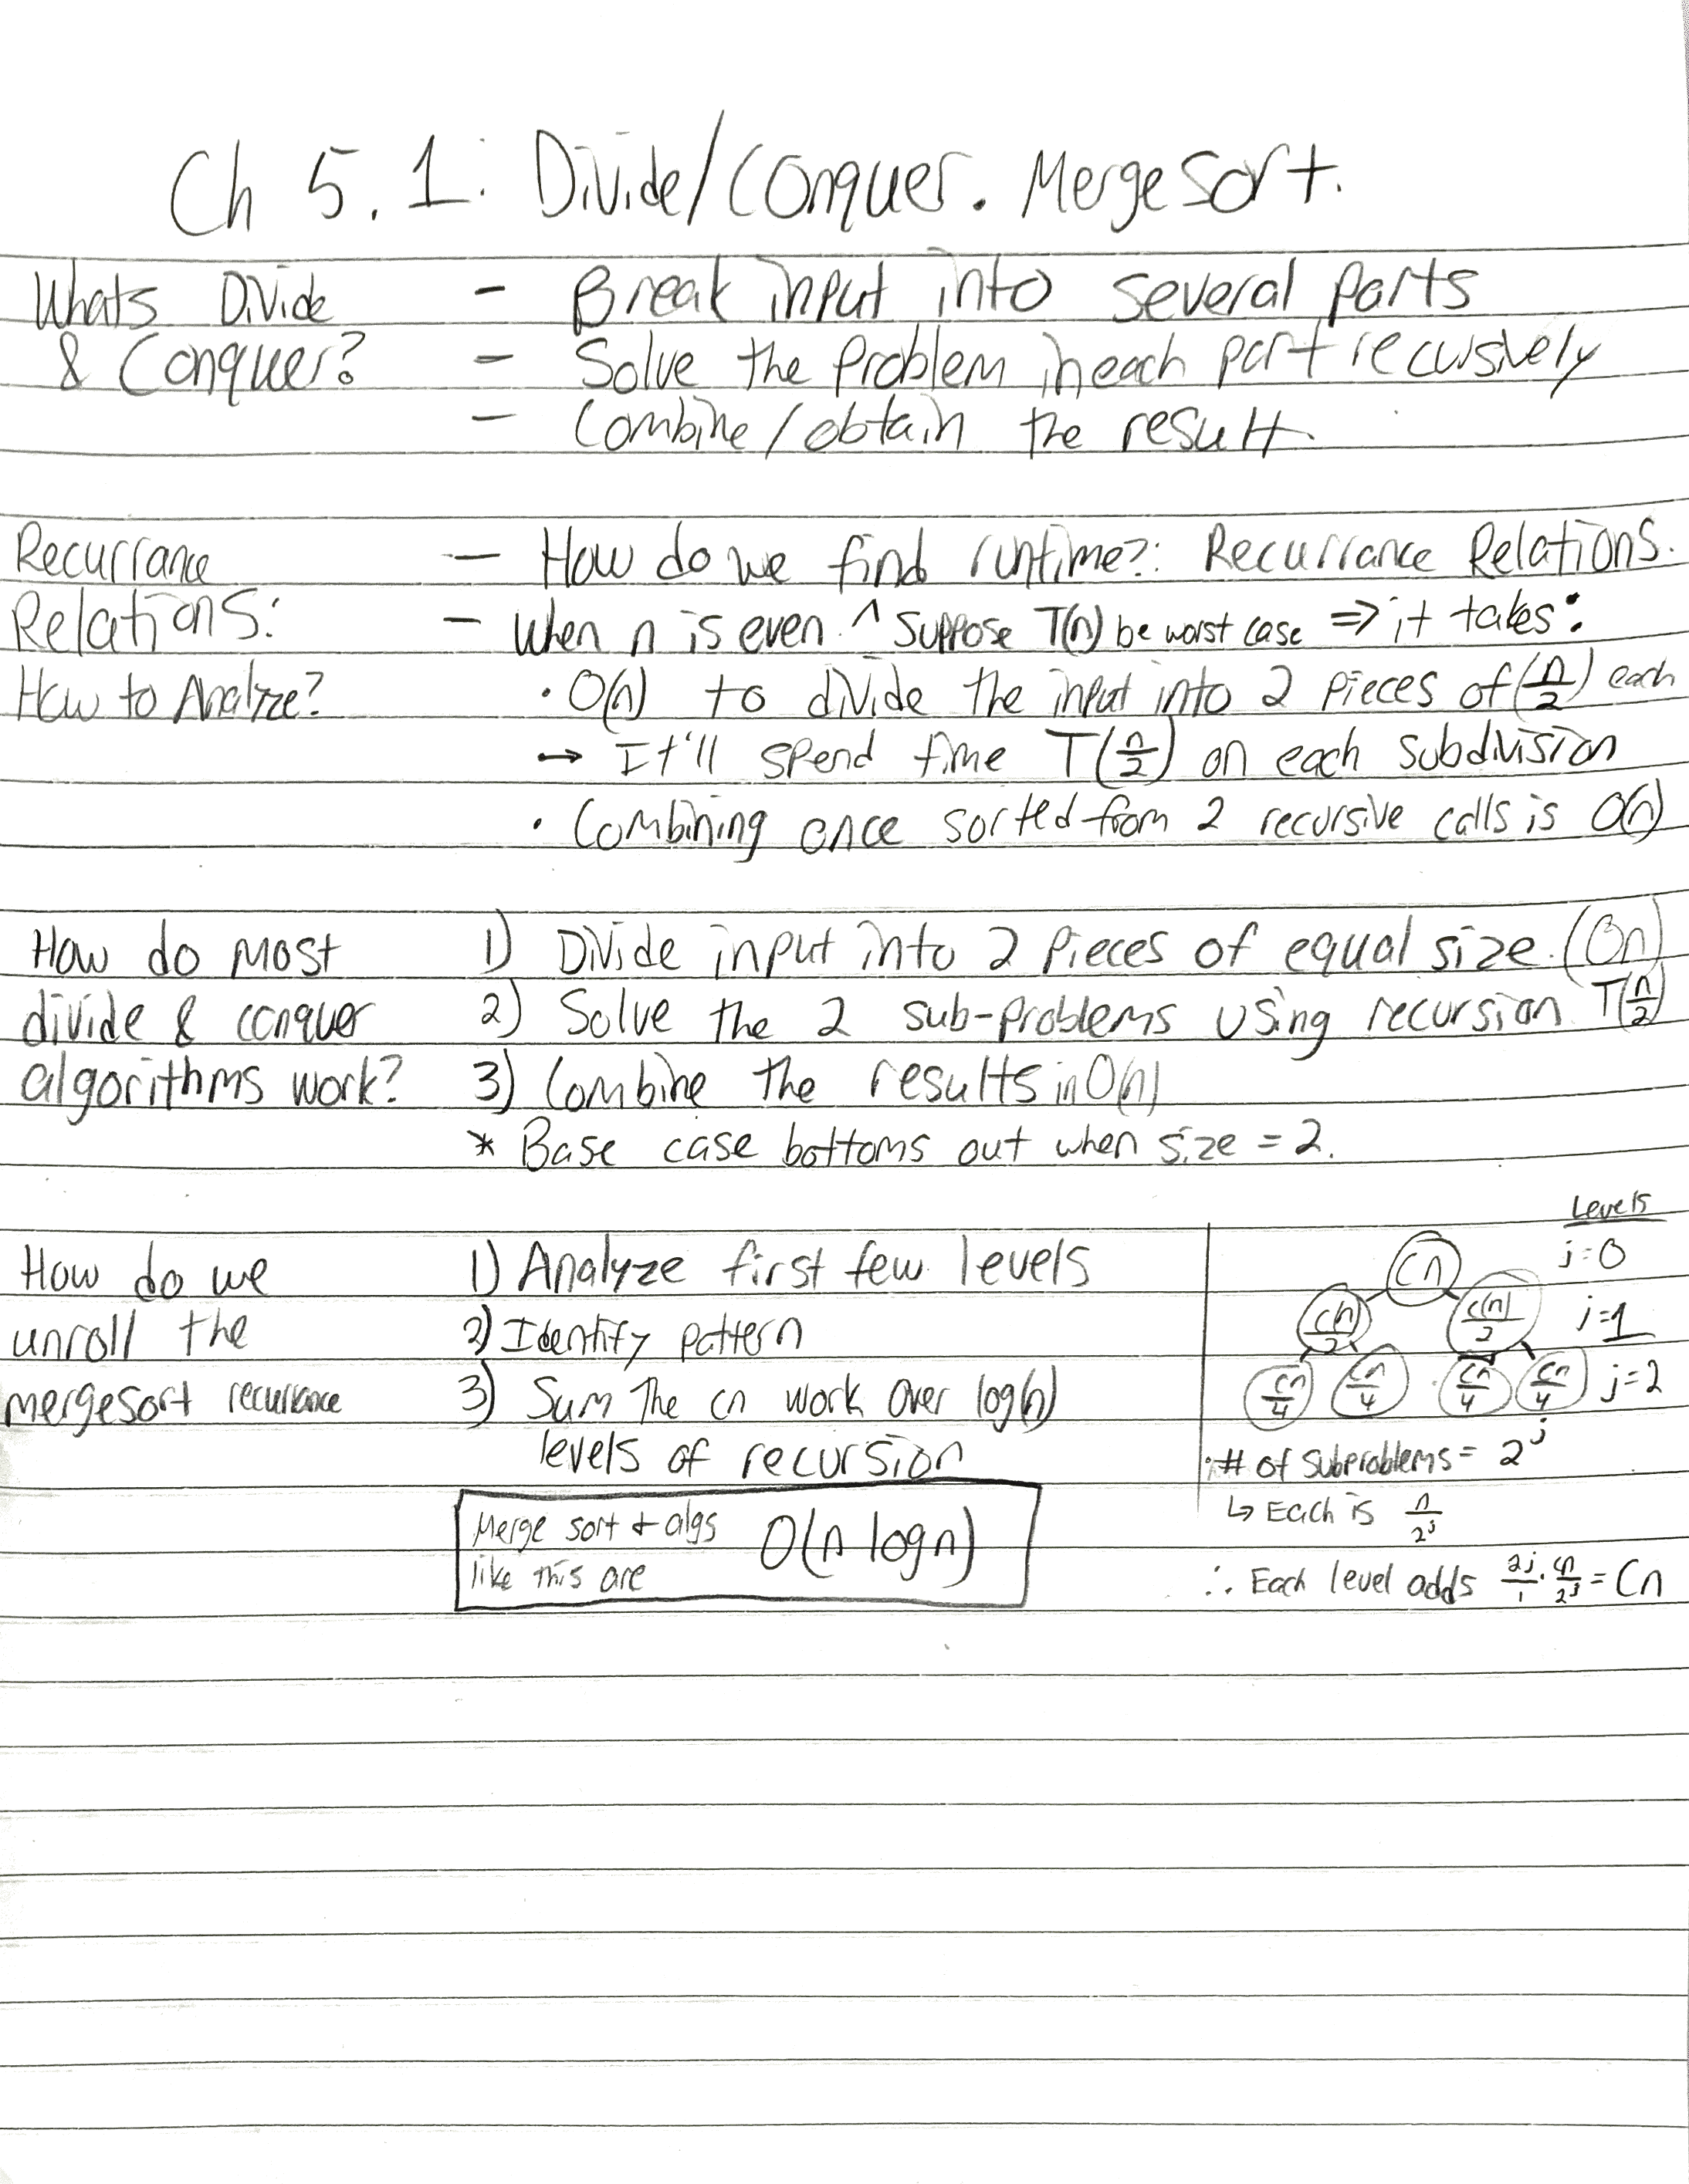 Ch 5.1: Divide/Conquer. MergeSort.
Whats Divide
& Conquer?
- Break input into several parts
- Solve the problem in each part recusively
- Combine/obtain the result.
Recurrance
Relations:
How to Analyze?
- How do we find runtime?: Recurrance Relations.
- When n is even ^ suppose T(n) be worst case => it takes:
· O(n) to divide the input into 2 pieces of (n/2) each
→ It'll spend time T(n/2) on each subdivision
· Combining once sorted from 2 recursive calls is O(n)
How do most
divide & conquer
algorithms work?
1) Divide input into 2 pieces of equal size. (On)
2) Solve the 2 sub-problems using recursion T(n/2)
3) Combine the results in O(n)
* Base case bottoms out when size = 2.
How do we
unroll the
mergesort recurrance
1) Analyze first few levels
2) Identify pattern
3) Sum the cn work over log(n)
levels of recursion
Merge sort + algs
like this are
O(n logn)
Levels
cn j=0
c(n)/2 c(n)/2 j=1
cn/4 cn/4 cn/4 cn/4 j=2
· # of subproblems = 2^j
↳ Each is n/2^j
∴ Each level adds 2j/1 · cn/2^j = Cn